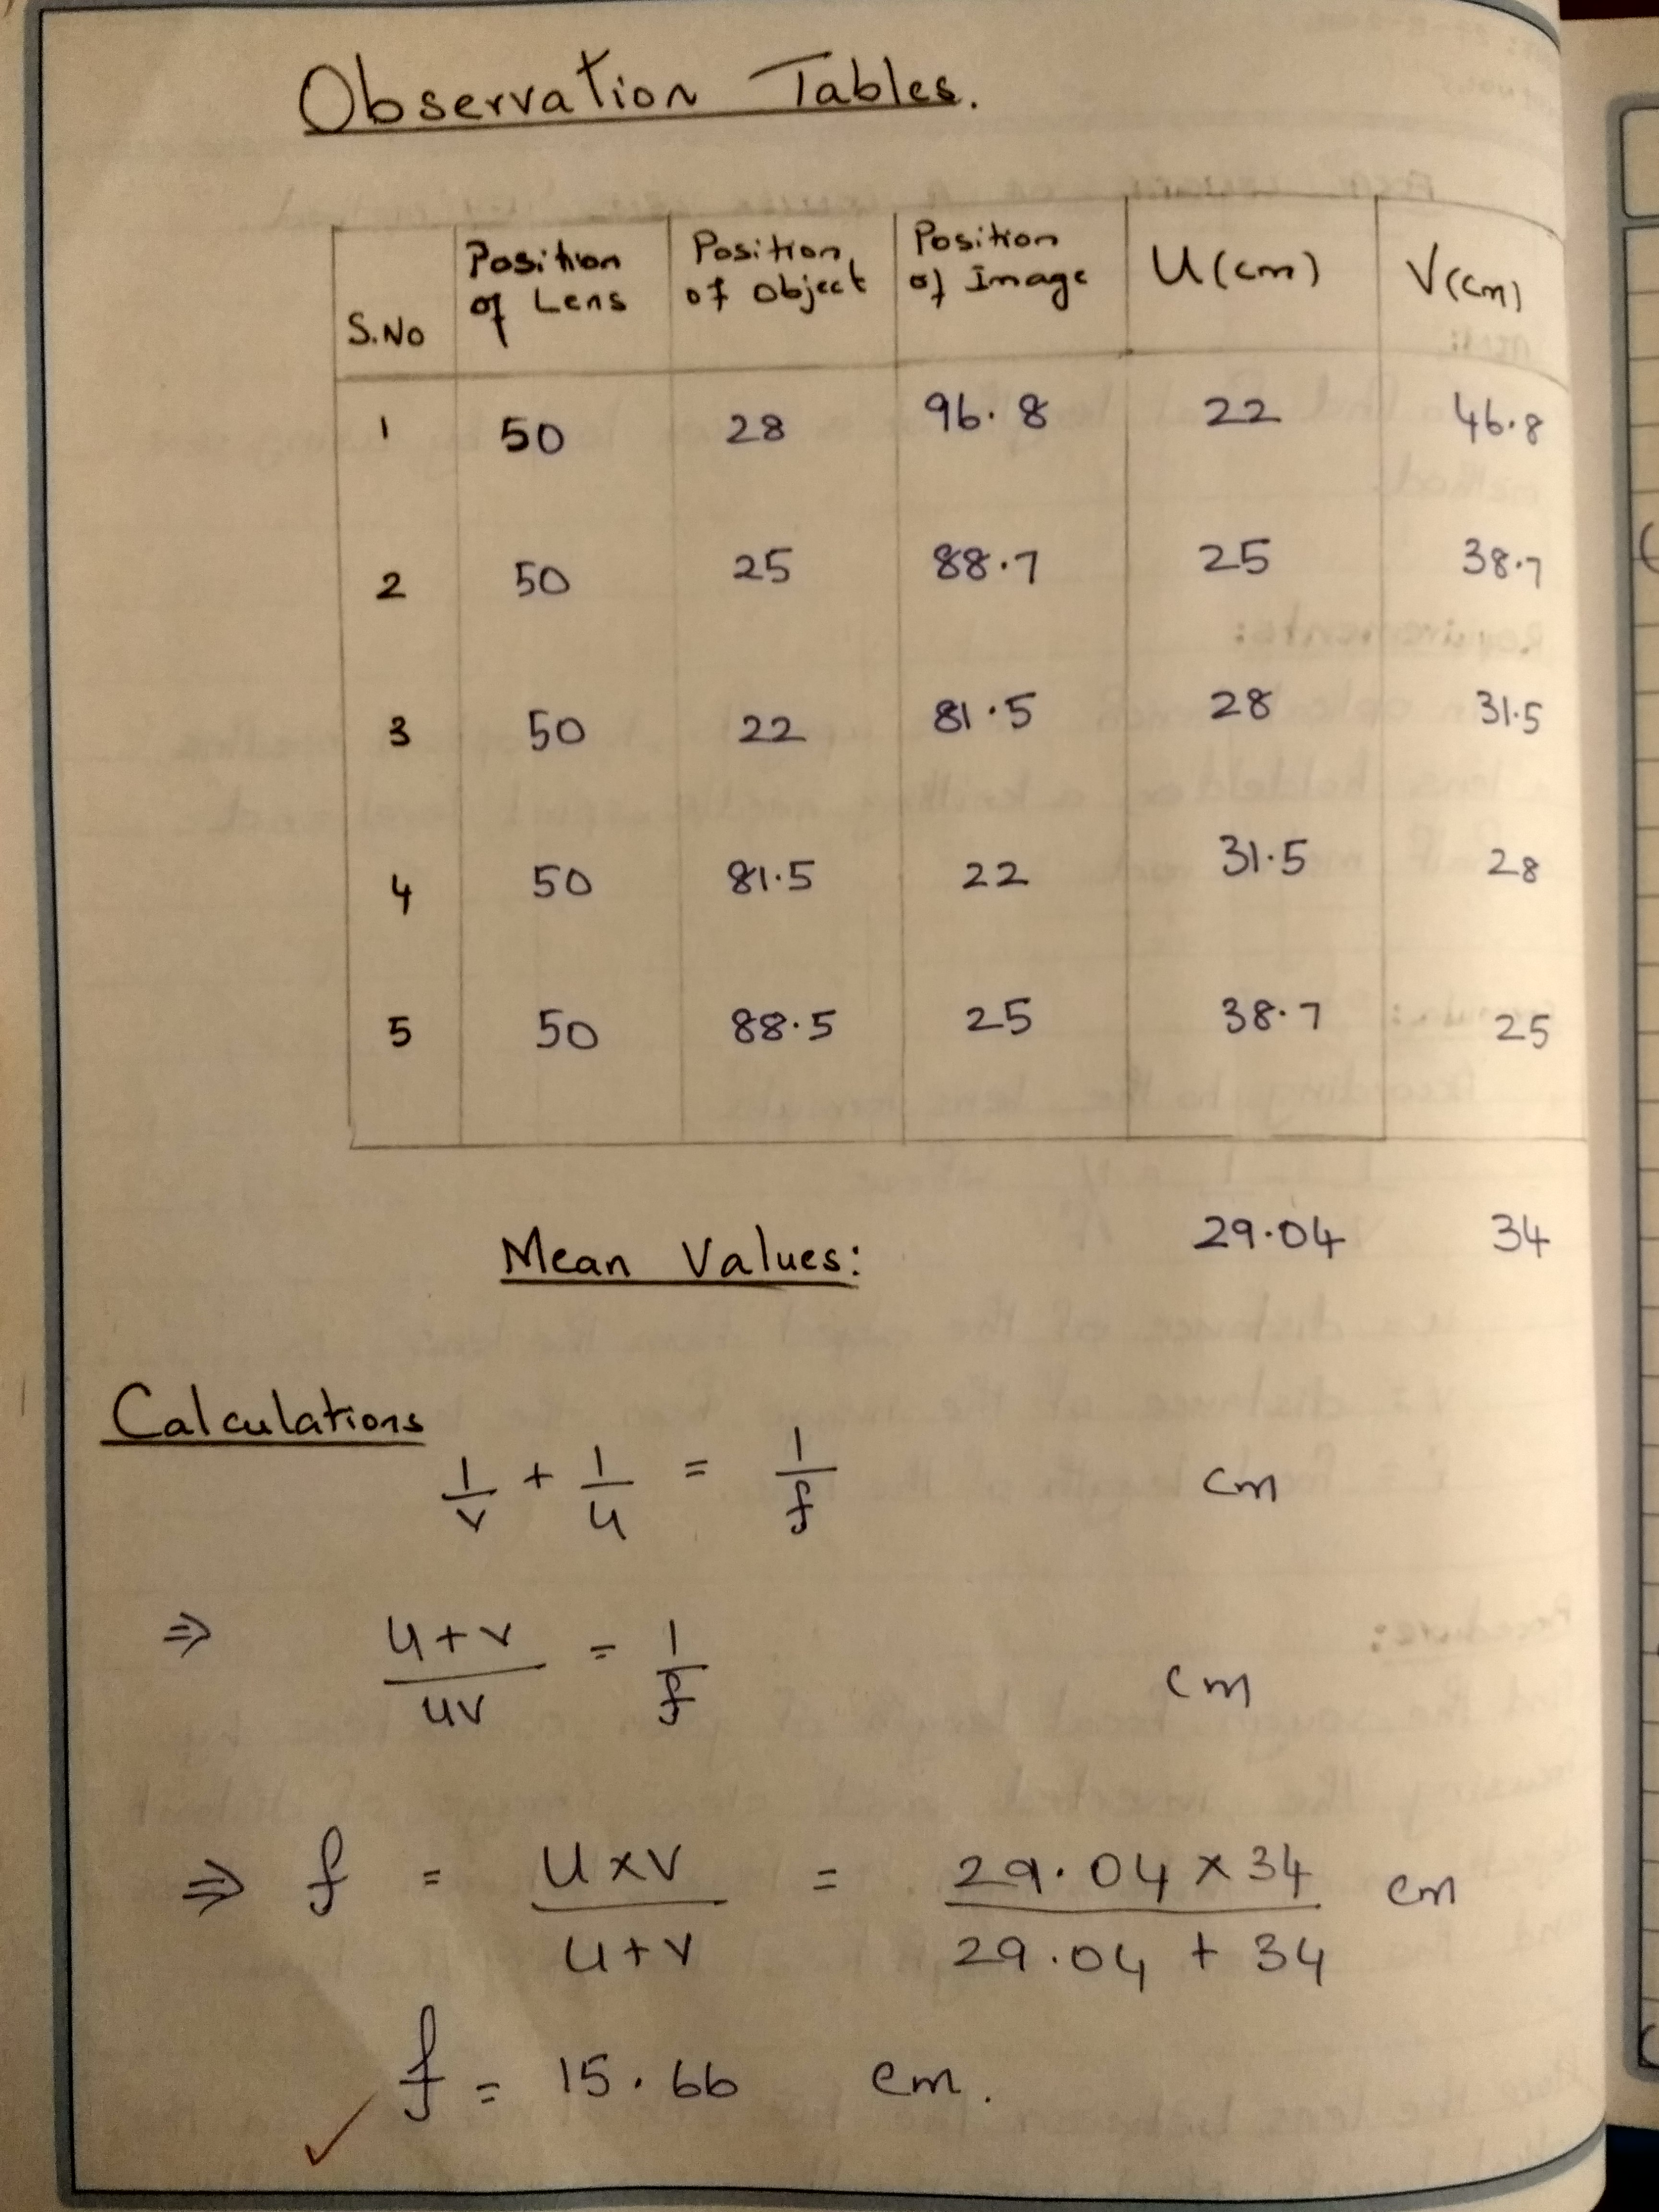 Observation Tables.
S.No | Position of Lens | Position of Object | Position of Image | U (cm) | V (cm)
1 | 50 | 28 | 96.8 | 22 | 46.8
2 | 50 | 25 | 88.7 | 25 | 38.7
3 | 50 | 22 | 81.5 | 28 | 31.5
4 | 50 | 81.5 | 22 | 31.5 | 28
5 | 50 | 88.5 | 25 | 38.7 | 25
Mean Values: 29.04 34
Calculations
1/v + 1/u = 1/f cm
⇒ u+v/uv = 1/f cm
⇒ f = u×v/u+v = 29.04 × 34/29.04 + 34 cm
f = 15.66 cm.